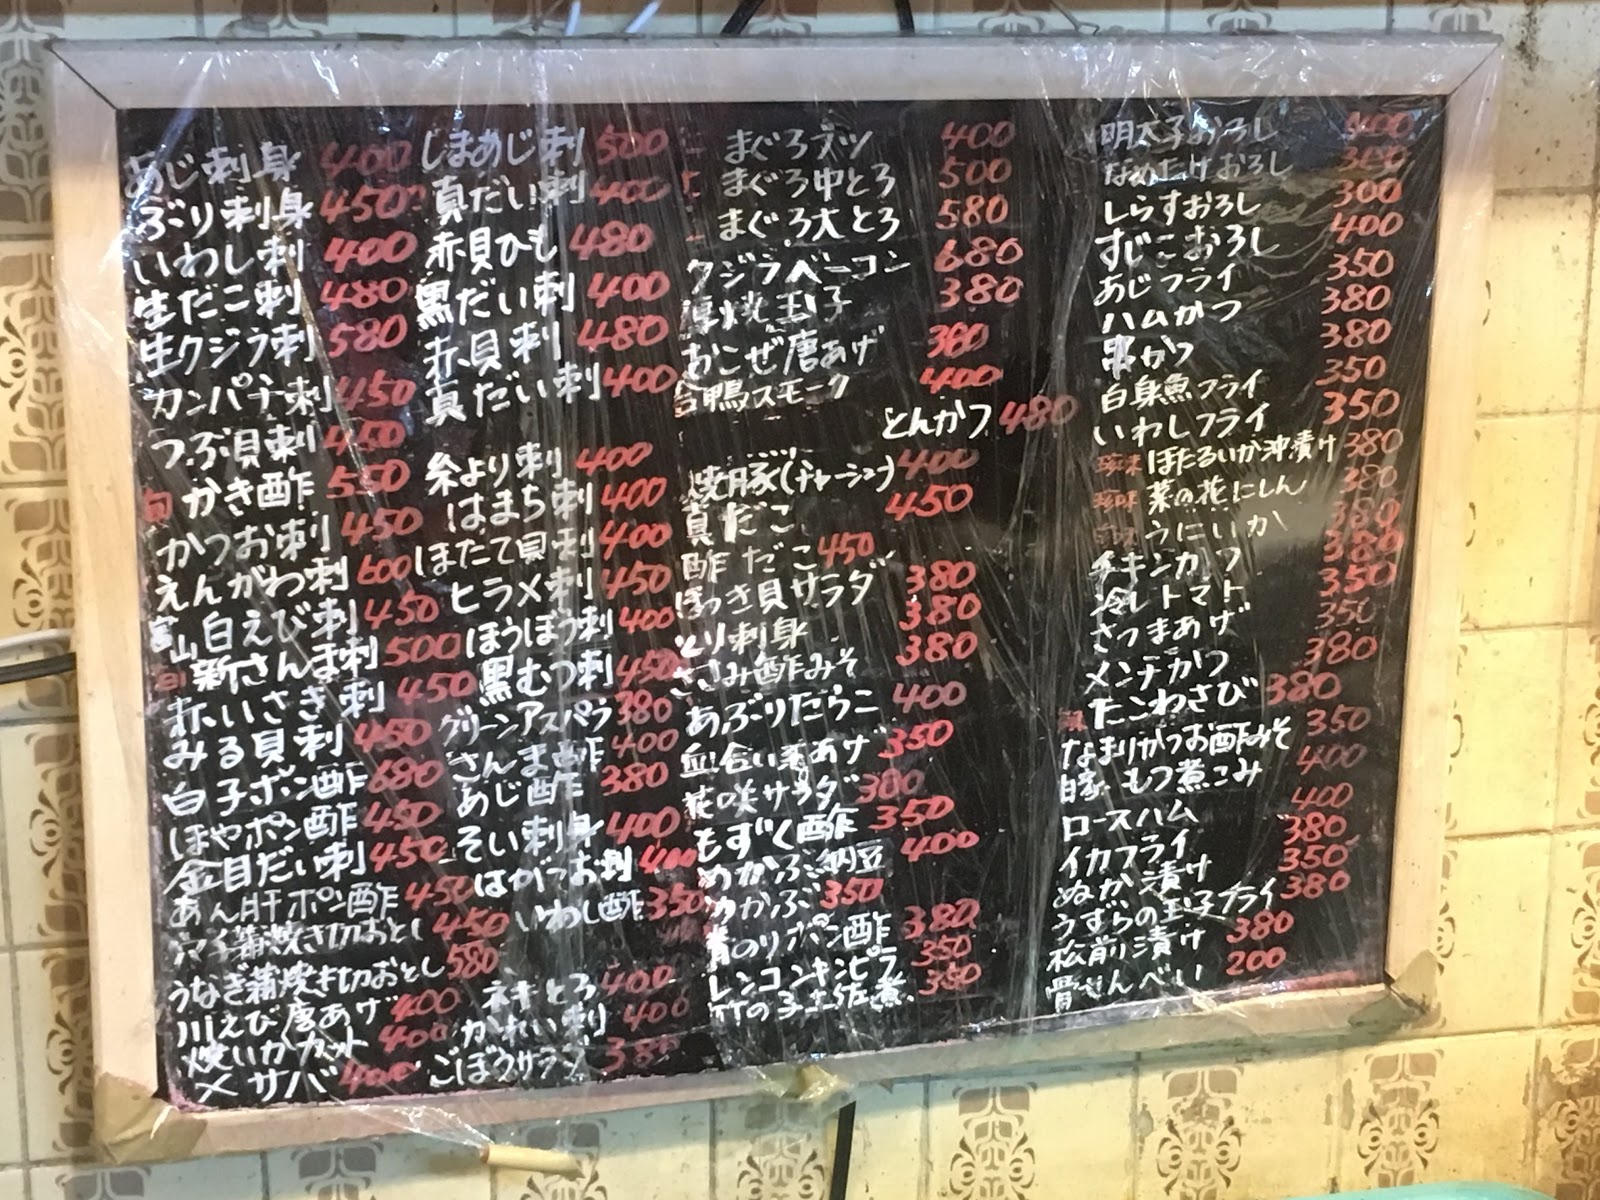 あじ刺身 400
ぶり刺身 450
いわし刺 400
生だこ刺 480
生クジラ刺 580
カンパチ刺 450
つぶ貝刺 450
旬 かき酢 550
かつお刺 450
えんがわ刺 600
富山白えび刺 450
新さんま刺 500
赤いさき刺 450
みる貝刺 450
白子ポン酢 680
ほやポン酢 450
金目だい刺 450
あん肝ポン酢 450
穴子蒲焼き切おとし 450
うなぎ蒲焼き切おとし 580
川えび唐あげ 400
焼いか 400
〆サバ 400
しまあじ刺 500
真だい刺 400
赤貝ひも 480
黒だい刺 400
赤貝刺 480
真だい刺 400
糸より刺 400
はまち刺 400
ほたて貝刺 400
ヒラメ刺 450
ほうぼう刺 400
黒むつ刺 450
グリーンアスパラ 380
さんま酢 400
あじ酢 380
そい刺身 400
はがつお刺 400
いわし酢 350
ネギとろ 400
かれい刺 400
ごぼうサラダ 380
まぐろブツ 400
まぐろ中とろ 500
まぐろ大とろ 580
クジラベーコン 680
厚焼玉子 380
おこぜ唐あげ 380
合鴨スモーク 400
とんかつ 480
焼豚(チャーシュー) 400
真だこ 450
酢だこ 450
ほっき貝サラダ 380
とり刺身 380
ささみ酢みそ 380
あぶりたらこ 400
血合い唐あげ 350
花咲サラダ 380
もずく酢 350
めかぶ納豆 400
めかぶ 350
青のりポン酢 380
レンコンキンピラ 350
竹の子土佐煮 350
明太子おろし 400
なめたけおろし 350
しらすおろし 300
すじこおろし 400
あじフライ 350
ハムかつ 380
串かつ 380
白身魚フライ 350
いわしフライ 350
珍味 ほたるいか沖漬け 380
珍味 菜の花にしん 380
珍味 うにいか 380
チキンカツ 380
冷しトマト 350
さつまあげ 350
メンチかつ 380
たこわさび 380
なまりかつお酢みそ 350
自家 もつ煮こみ 400
ロースハム 400
イカフライ 380
ぬか漬け 350
うずらの玉子フライ 380
松前漬け 380
骨せんべい 200